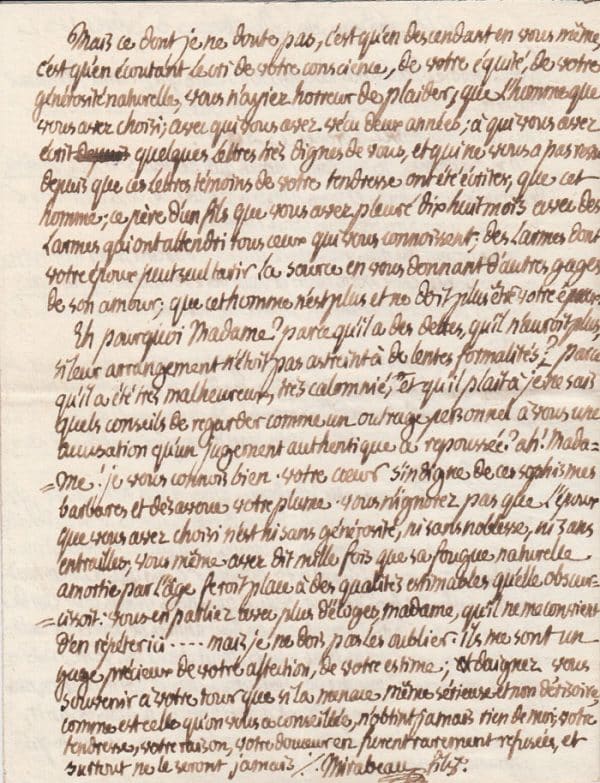 Mais ce dont je ne doute pas, c'est qu'en descendant en vous même,
c'est qu'en écoutant le cri de votre conscience, de votre équité, de votre
générosité naturelle, vous n'aiez horreur de plaider; que l'homme que
vous avez choisi; avec qui vous avez vécu deux années; à qui vous avez
écrit depuis quelques lettres très dignes de vous, et qui ne vous a pas revue
depuis que ces lettres témoins de votre tendresse ont été écrites, que cet
homme; ce père d'un fils que vous avez pleuré dix huit mois avec des
larmes qui ont attendri tous ceux qui vous connoissent; des larmes dont
votre époux peut seul tarir la source en vous donnant d'autres gages
de son amour; que cet homme n'est plus et ne doit plus être votre époux.
Eh pourquoi Madame? parce qu'il a des dettes, qu'il n'auroit plus,
si leur arrangement n'étoit pas astreint à de lentes formalités? Parce
qu'il a été très malheureux, très calomnié, et qu'il plait à je ne sais
quels conseils de regarder comme un outrage personnel à vous une
accusation qu'un jugement authentique a repoussée? ah! Mada-
=me! je vous connois bien. votre cœur s'indigne de ces sophismes
barbares et désavoue votre plume. vous n'ignorez pas que l'époux
que vous avez choisi n'est ni sans générosité, ni sans noblesse, ni sans
entrailles; vous même avez dit mille fois que sa fougue naturelle
amortie par l'âge feroit place à des qualités estimables qu'elle obscur-
=cissoit. vous en parliez avec plus d'éloges, madame, qu'il ne me convient
d'en répéter ici ---- mais je ne dois pas les oublier. ils me sont un
gage précieux de votre affection, de votre estime; et daignez vous
souvenir à votre tour que si la menace même sérieuse et non dérisoire,
comme est celle qu'on vous a conseillée, n'obtint jamais rien de moi, votre
tendresse, votre raison, votre douceur en furent rarement refusées, et
surtout ne le seront jamais /. Mirabeau fils.